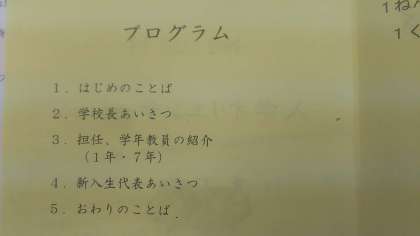 プログラム
1．はじめのことば
2．学校長あいさつ
3．担任、学年教員の紹介
（1年・7年）
4．新入生代表あいさつ
5．おわりのことば
1ねん
1く